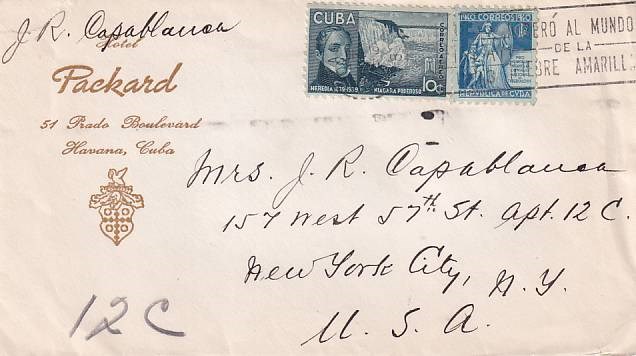 J. R. Capablanca
Hotel
Packard
51 Prado Boulevard
Havana, Cuba
CUBA
CORREO AEREO
10c
HEREDIA 1839-1939 NIAGARA PODEROSO
1940 CORREOS 1940
REPUBLICA DE CUBA
AL MUNDO
DE LA
AMARILLA
Mrs. J. R. Capablanca
157 West 57th St. Apt. 12 C.
New York City, N. Y.
U. S. A.
12 C